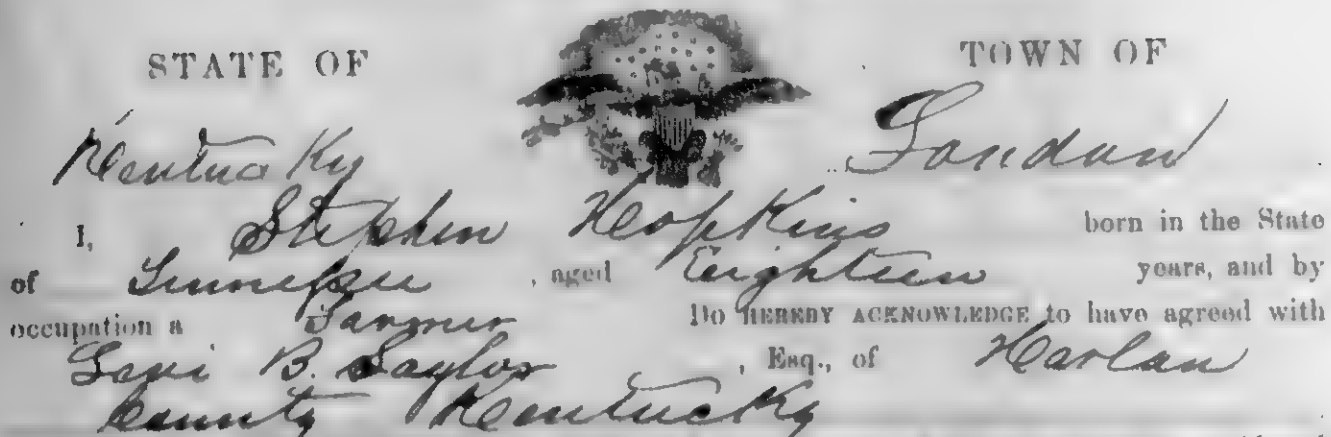 STATE OF
TOWN OF
Kentucky
London
I, Stephen Hopkins born in the State
of Tennessee, aged Eighteen years, and by
occupation a Farmer Do HEREBY ACKNOWLEDGE to have agreed with
Levi B. Saylor, Esq., of Harlan
County Kentucky